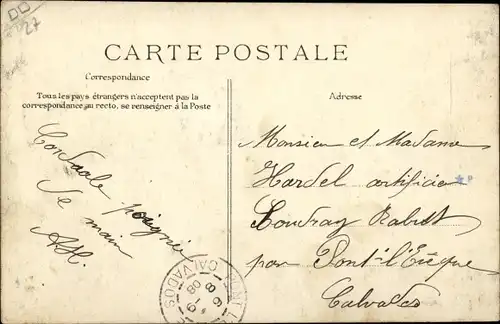 DD
27
CARTE POSTALE
Correspondance
Tous les pays étrangers n'acceptent pas la
correspondance au recto, se renseigner à la Poste
Adresse
Cordiale poignée
de main
Monsieur et Madame
Hardel artificier
Coudray Rabut
par Pont-l'Évêque
Calvados
CALVADOS